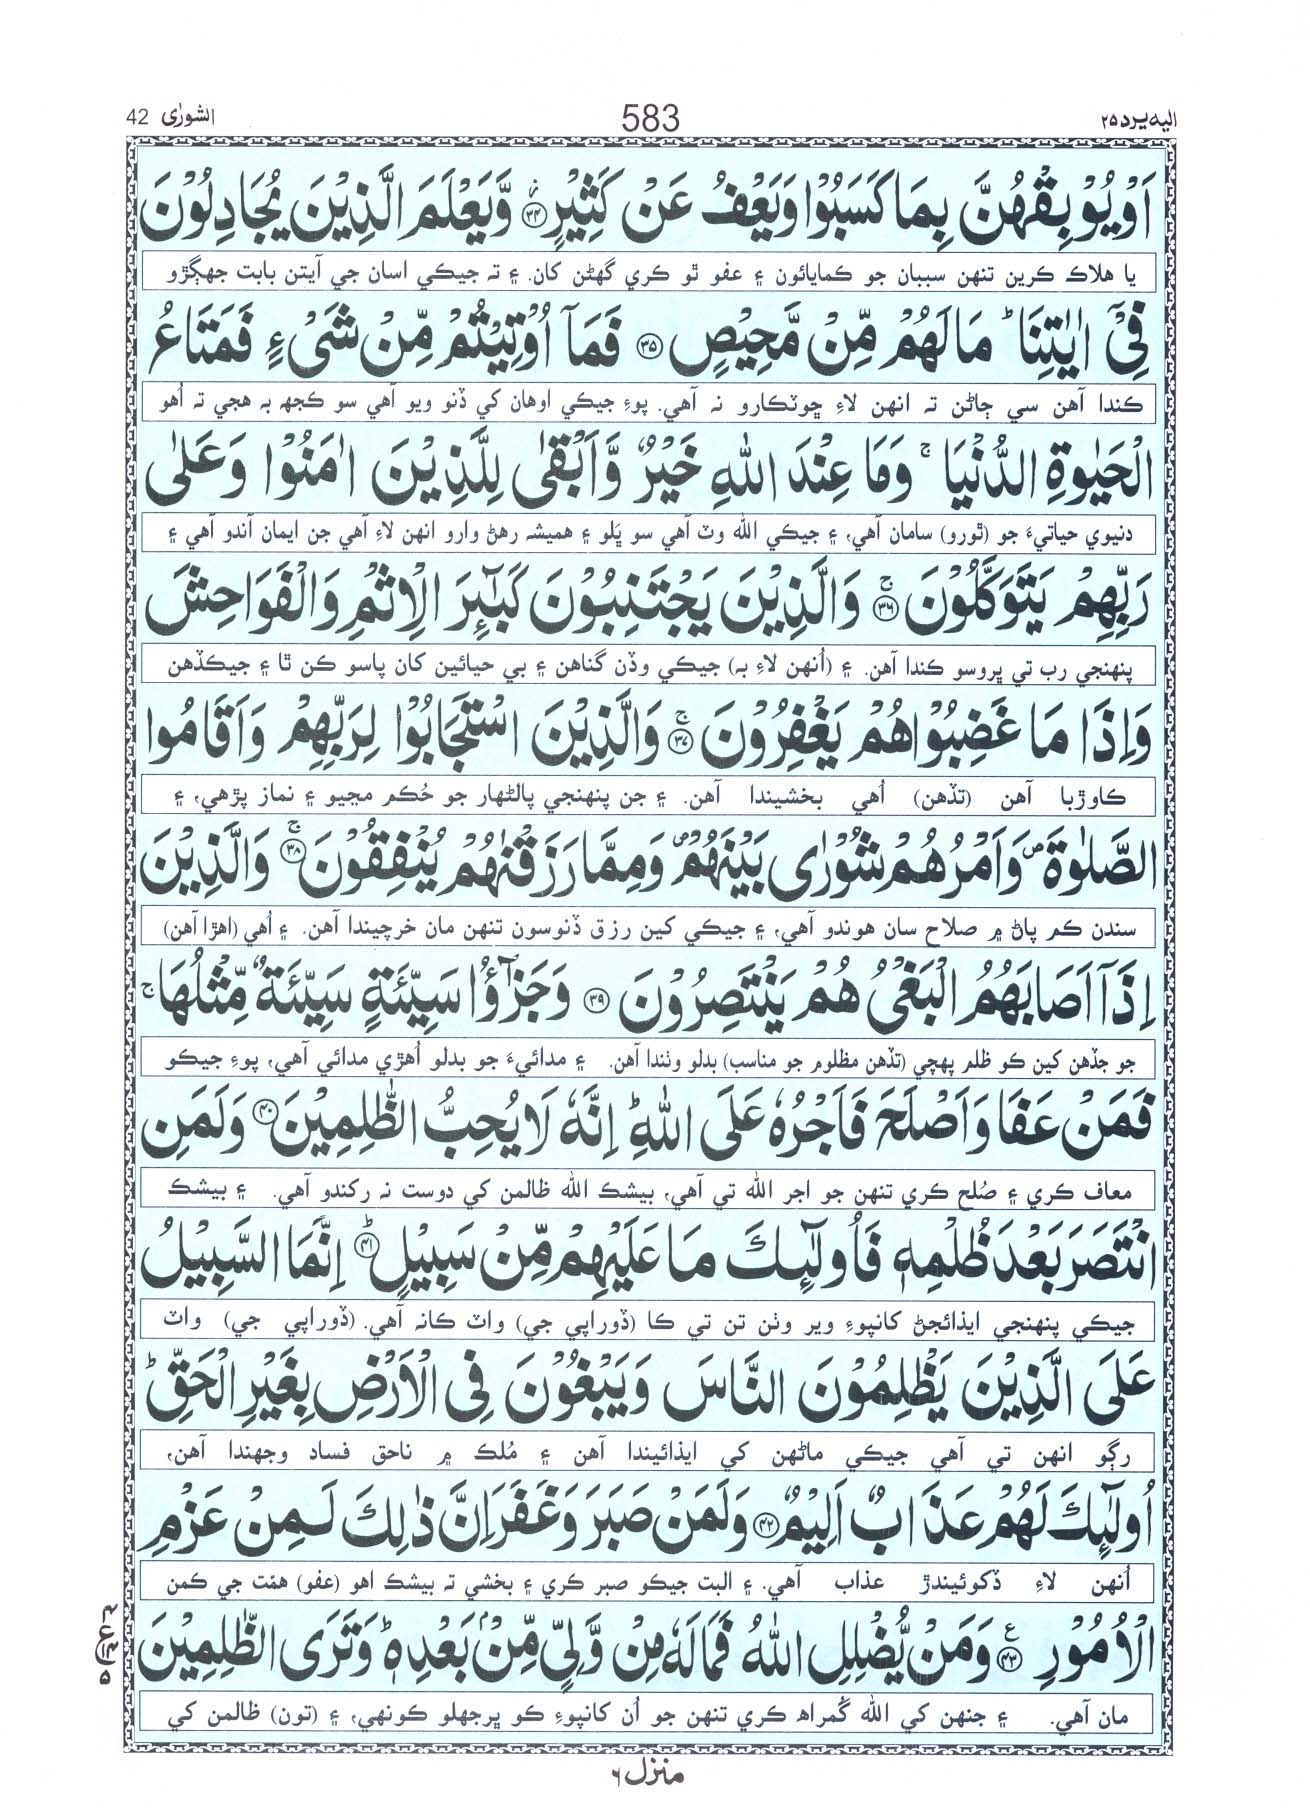 الیه یرد ۲۵ 583 الشورٰی 42
اَوۡ یُوۡبِقۡهُنَّ بِمَا کَسَبُوۡا وَیَعۡفُ عَنۡ کَثِیۡرٍ ۙ﴿۳۴﴾ وَّیَعۡلَمَ الَّذِیۡنَ یُجَادِلُوۡنَ
يا هلاڪ ڪرين تنهن سببان جو ڪمايائون ۽ عفو ٿو ڪري گهڻن کان. ۽ ته جيڪي اسان جي آيتن بابت جهڳڙو
فِیۡۤ اٰیٰتِنَا ؕ مَا لَهُمۡ مِّنۡ مَّحِیۡصٍ ﴿۳۵﴾ فَمَاۤ اُوۡتِیۡتُمۡ مِّنۡ شَیۡءٍ فَمَتَاعُ
ڪندا آهن سي ڄاڻن ته انهن لاءِ ڇوٽڪارو نه آهي. پوءِ جيڪي اوهان کي ڏنو ويو آهي سو ڪجهه به هجي ته اُهو
الۡحَیٰوةِ الدُّنۡیَا ۚ وَمَا عِنۡدَ اللّٰهِ خَیۡرٌ وَّاَبۡقٰی لِلَّذِیۡنَ اٰمَنُوۡا وَعَلٰی
دنيوي حياتيءَ جو (ٿورو) سامان آهي، ۽ جيڪي الله وٽ آهي سو ڀلو ۽ هميشہ رهڻ وارو انهن لاءِ آهي جن ايمان آندو آهي ۽
رَبِّهِمۡ یَتَوَکَّلُوۡنَ ۚ﴿۳۶﴾ وَالَّذِیۡنَ یَجۡتَنِبُوۡنَ کَبٰٓئِرَ الۡاِثۡمِ وَالۡفَوَاحِشَ
پنهنجي رب تي ڀروسو ڪندا آهن. ۽ (اُنهن لاءِ به) جيڪي وڏن گناهن ۽ بي حيائين کان پاسو ڪن ٿا ۽ جيڪڏهن
وَاِذَا مَا غَضِبُوۡا هُمۡ یَغۡفِرُوۡنَ ۚ﴿۳۷﴾ وَالَّذِیۡنَ اسۡتَجَابُوۡا لِرَبِّهِمۡ وَاَقَامُوا
ڪاوڙبا آهن (تڏهن) اُهي بخشيندا آهن. ۽ جن پنهنجي پالڻهار جو حُڪم مڃيو ۽ نماز پڙهي، ۽
الصَّلٰوةَ ۪ وَاَمۡرُهُمۡ شُوۡرٰی بَیۡنَهُمۡ ۪ وَمِمَّا رَزَقۡنٰهُمۡ یُنۡفِقُوۡنَ ۚ﴿۳۸﴾ وَالَّذِیۡنَ
سندن ڪم پاڻ ۾ صلاح سان هوندو آهي، ۽ جيڪي کين رزق ڏنوسون تنهن مان خرچيندا آهن. ۽ اُهي (اهڙا آهن)
اِذَاۤ اَصَابَهُمُ الۡبَغۡیُ هُمۡ یَنۡتَصِرُوۡنَ ﴿۳۹﴾ وَجَزٰٓؤُا سَیِّئَةٍ سَیِّئَةٌ مِّثۡلُهَا ۚ
جو جڏهن کين ڪو ظلم پهچي (تڏهن مظلوم جو مناسب) بدلو وٺندا آهن. ۽ مدائيءَ جو بدلو اُهڙي مدائي آهي، پوءِ جيڪو
فَمَنۡ عَفَا وَاَصۡلَحَ فَاَجۡرُهٗ عَلَی اللّٰهِ ؕ اِنَّهٗ لَا یُحِبُّ الظّٰلِمِیۡنَ ﴿۴۰﴾ وَلَمَنِ
معاف ڪري ۽ صُلح ڪري تنهن جو اجر الله تي آهي، بيشڪ الله ظالمن کي دوست نہ رکندو آهي. ۽ بيشڪ
انۡتَصَرَ بَعۡدَ ظُلۡمِهٖ فَاُولٰٓئِکَ مَا عَلَیۡهِمۡ مِّنۡ سَبِیۡلٍ ؕ﴿۴۱﴾ اِنَّمَا السَّبِیۡلُ
جيڪي پنهنجي ايذائجڻ کانپوءِ وير وٺن تن تي ڪا (ڏوراپي جي) واٽ ڪانہ آهي. (ڏوراپي جي) واٽ
عَلَی الَّذِیۡنَ یَظۡلِمُوۡنَ النَّاسَ وَیَبۡغُوۡنَ فِی الۡاَرۡضِ بِغَیۡرِ الۡحَقِّ ؕ
رڳو انهن تي آهي جيڪي ماڻهن کي ايذائيندا آهن ۽ مُلڪ ۾ ناحق فساد وجهندا آهن،
اُولٰٓئِکَ لَهُمۡ عَذَابٌ اَلِیۡمٌ ﴿۴۲﴾ وَلَمَنۡ صَبَرَ وَغَفَرَ اِنَّ ذٰلِکَ لَمِنۡ عَزۡمِ
اُنهن لاءِ ڏکوئيندڙ عذاب آهي. ۽ البت جيڪو صبر ڪري ۽ بخشي تہ بيشڪ اهو (عفو) همّت جي ڪمن
الۡاُمُوۡرِ ﴿۴۳﴾ ع وَمَنۡ یُّضۡلِلِ اللّٰهُ فَمَا لَهٗ مِنۡ وَّلِیٍّ مِّنۡۢ بَعۡدِهٖ ؕ وَتَرَی الظّٰلِمِیۡنَ
مان آهي. ۽ جنهن کي الله گمراھ ڪري تنهن جو اُن کانپوءِ ڪو ڀرجهلو ڪونهي، ۽ (تون) ظالمن کي
منزل ۶